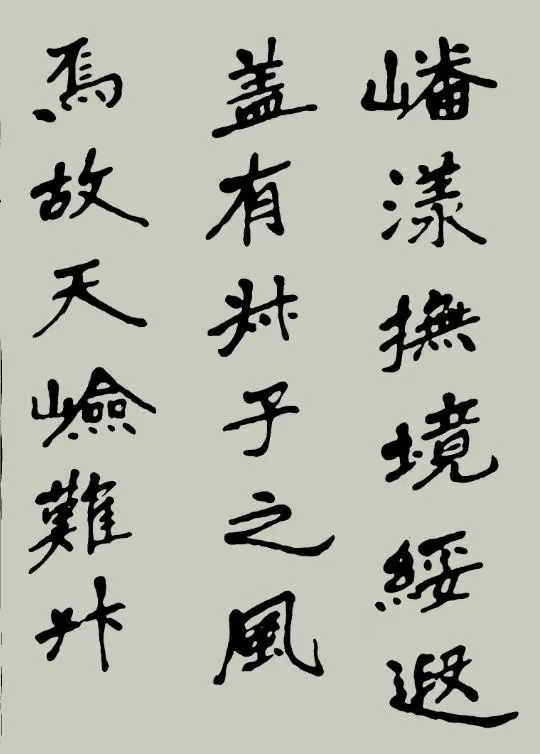 嶓漾撫境綏遐
蓋有叔子之風
焉故天嶮難升